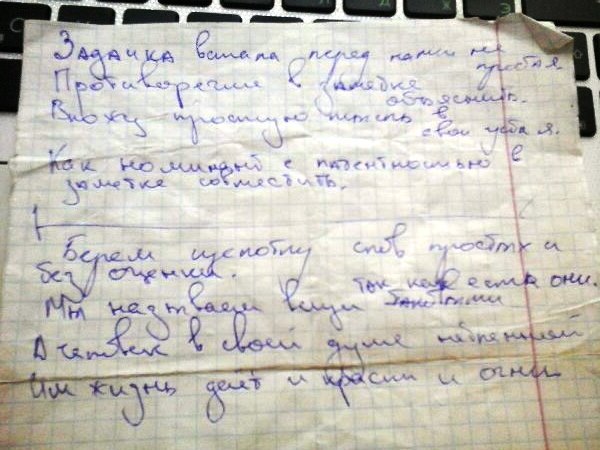 Задачка встала перед нами не простая
Противоречие в заметке объяснить.
Вложу простую мысль в свои уста я.
Как номинант с патентностью в
заметке совместить.
Берем щепотку слов простых и
без оценки.
Мы называем вещи так как есть они.
А человек в своей душе нетленной
Им жизнь даёт и краски и огни